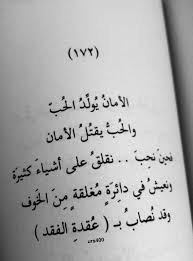 (١٧٢)
الأمانُ يُولِّدُ الحُبّ
والحُبُّ يقتُلُ الأمان
نحينَ نحبّ .. نقلقُ على أشياءَ كثيرَة
ونعيشُ في دائِرَةٍ مُغلقَةٍ مِنَ الخَوف
وقد نُصابُ بـ ( عُقدةِ الفقد )